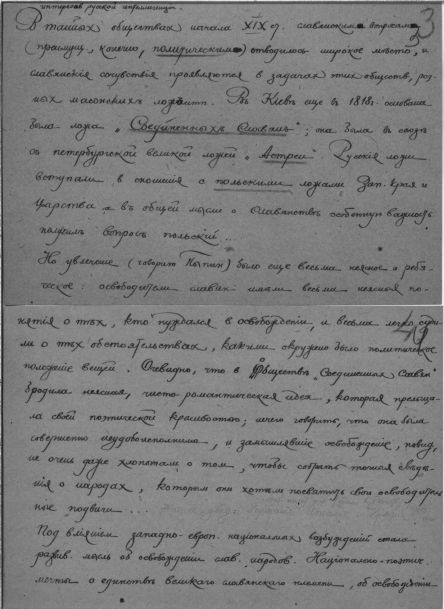 интересов русской интеллигенции.
В тайных обществах начала XIX ст. славянским вопросам
(преимущ., конечно, политическим) отводилось широкое мѣсто, и
славянскія сочувствія проявляются в задачах этих обществ, раз-
ных масонскихъ лож. Въ Кіевѣ еще въ 1818г. основана
была ложа „Соединенныхъ Славянъ"; она была въ связи
съ петербургской великой ложей „Астреи". Русскія ложи
вступали в сношенія с польскими ложами Зап. края и
Царства, а въ общей мысли о Славянствѣ особенную важность
получилъ вопросъ польскій...
Но увлеченіе (говорит Пыпин) было еще весьма неясное и ребя-
ческое: освободители славян имѣли весьма неясныя по-
нятія о тѣх, кто нуждался в освобожденіи, и весьма легко суди-
ли о тѣх обстоятельствах, какими окружено было политическое
положеніе вещей. Очевидно, что в Обществѣ „Соединенных Славян"
бродила неясная, чисто романтическая идея, которая прельща-
ла своей поэтической красивостью; нечего говорить, что она была
совершенно неудобоисполнима, и замышлявшіе освобожденіе, повид.,
не очень даже хлопотали о том, чтобы собрать точныя свѣдѣ-
нія о народах, которым они хотѣли посвятить свои освободитель-
ные подвиги...
Под вліяніем западно-европ. національных возбужденій стала
развив. мысль об освобожденіи слав. народов. Національно-поэтич.
мечты о единствѣ великаго славянскаго племени, об освобожденіи